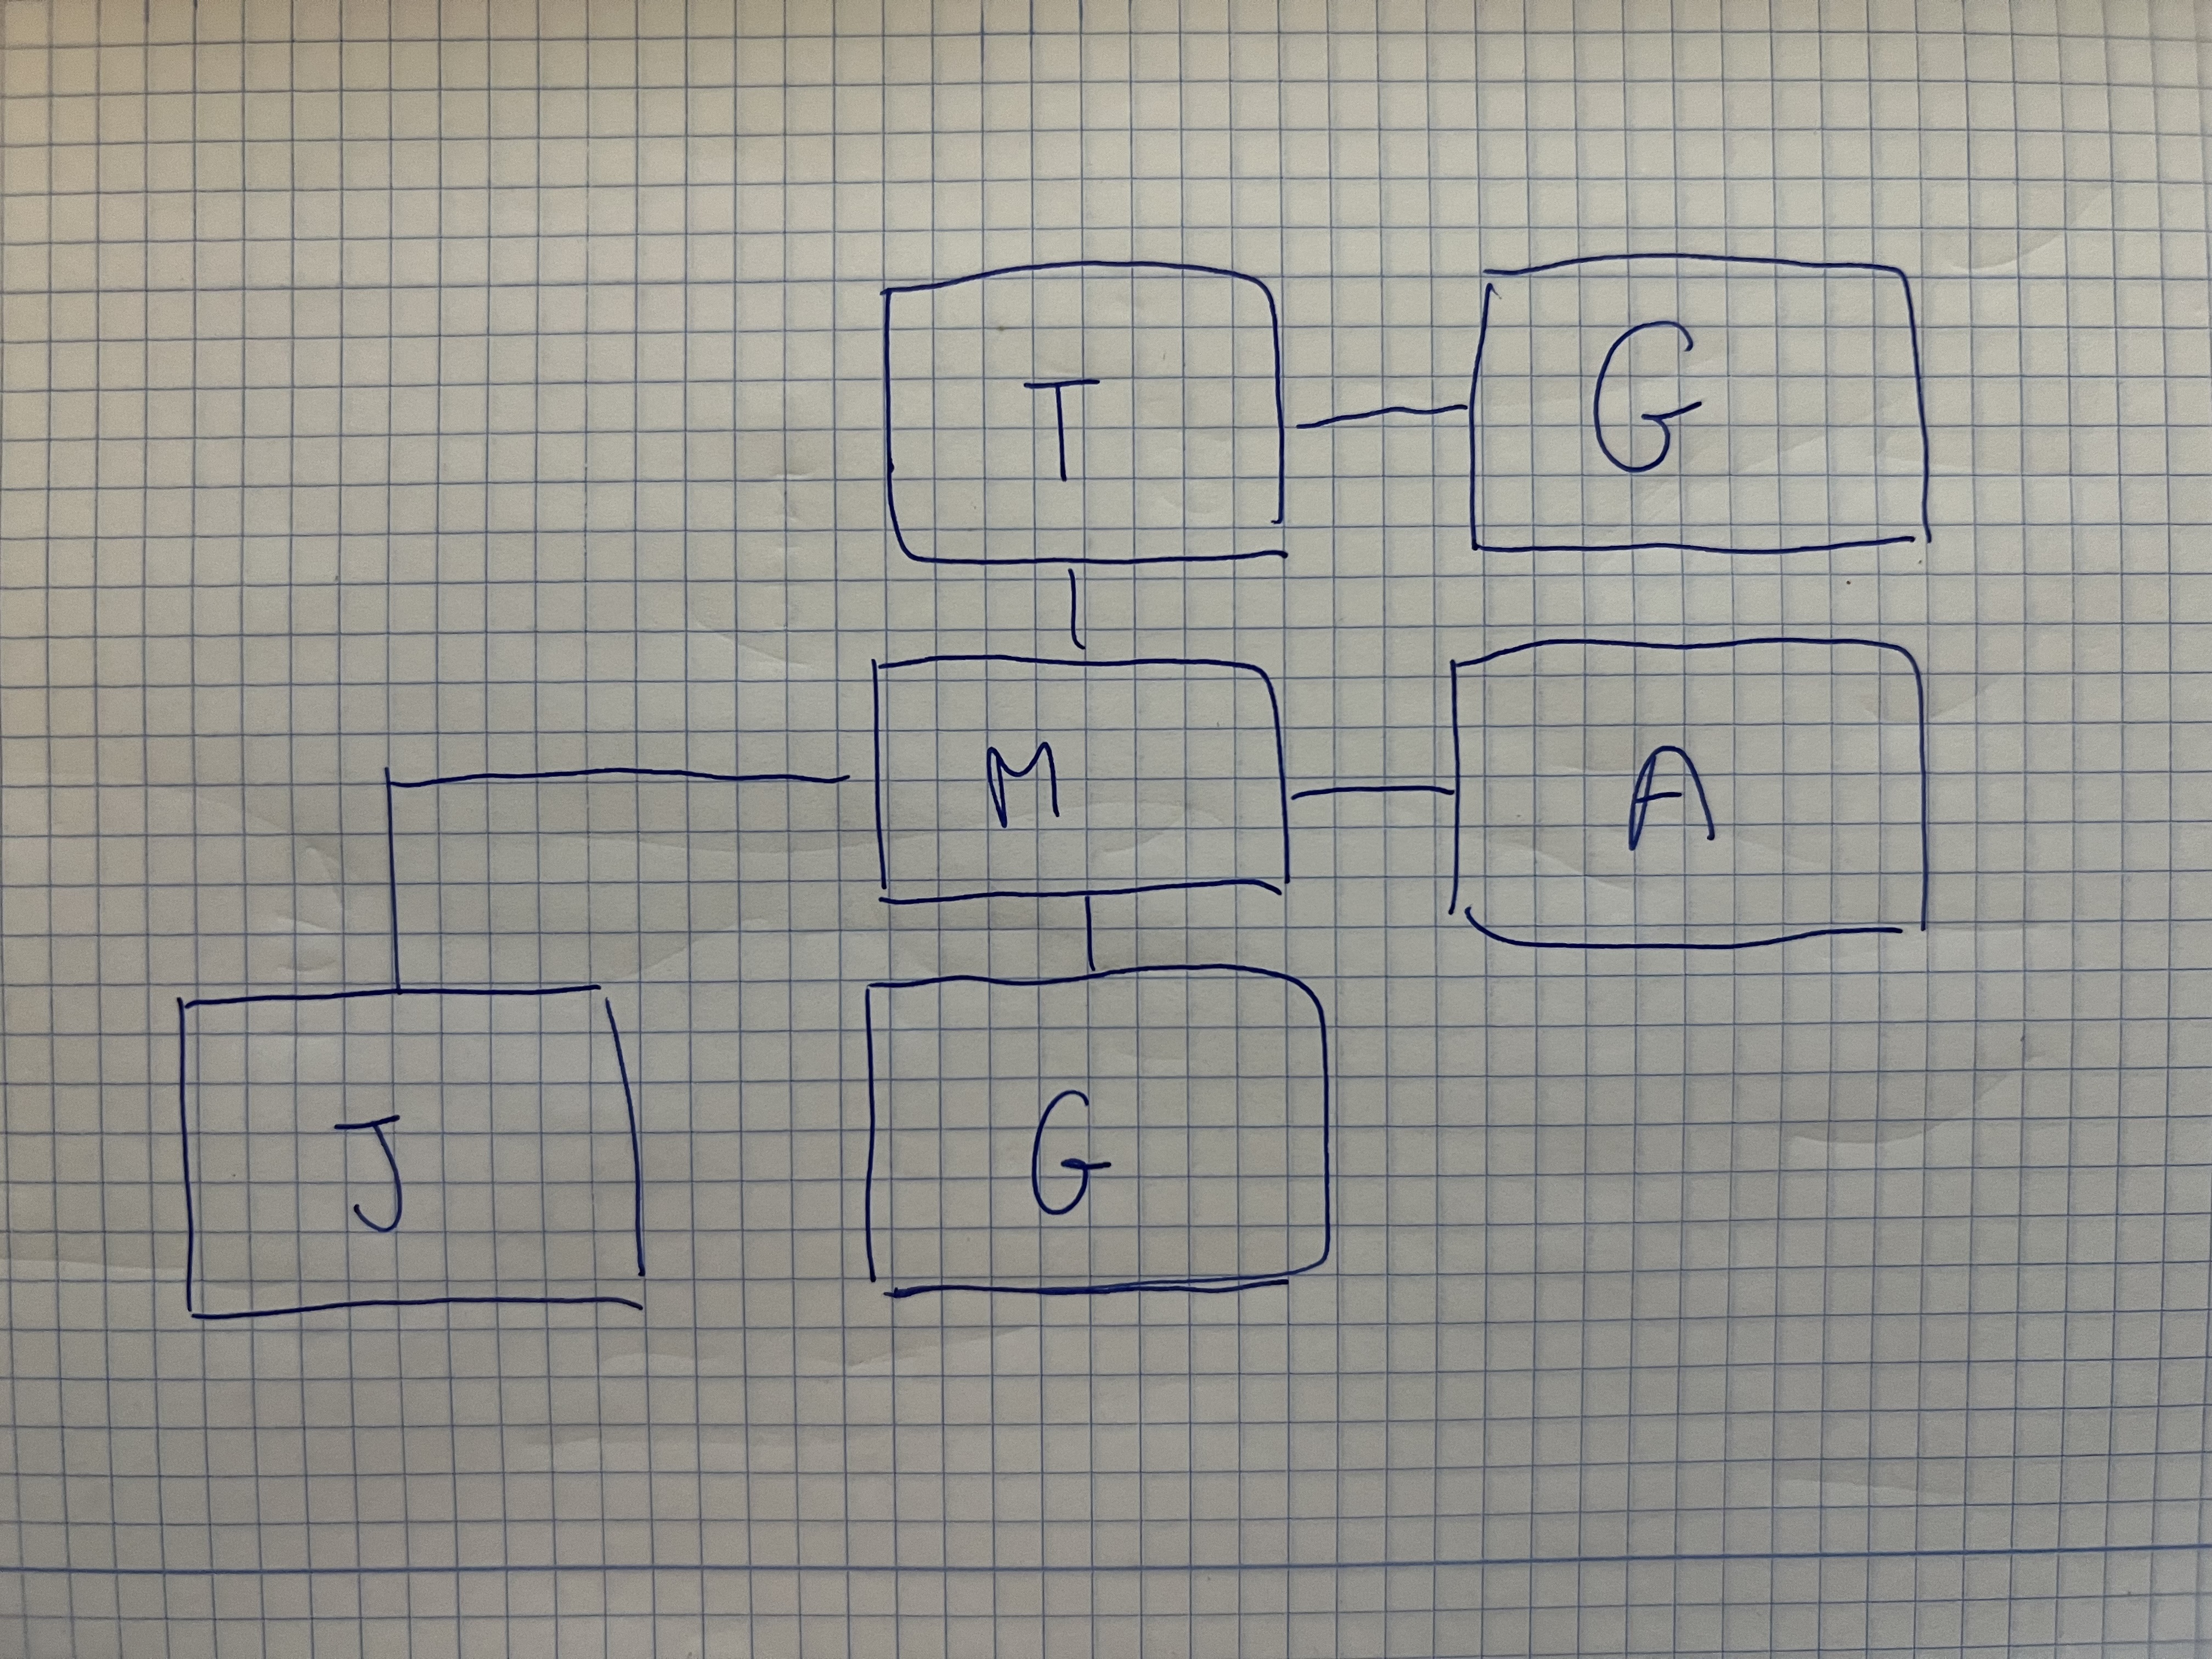 T G
M A
J G